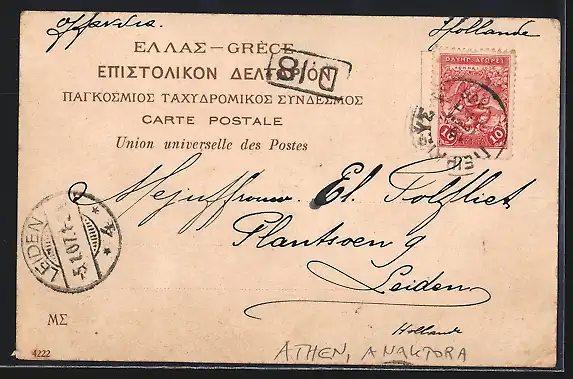 Ολλανδία Hollande
ΕΛΛΑΣ–GRÈCE
ΕΠΙΣΤΟΛΙΚΟΝ ΔΕΛΤΑΡΙΟΝ
ΠΑΓΚΟΣΜΙΟΣ ΤΑΧΥΔΡΟΜΙΚΟΣ ΣΥΝΔΕΣΜΟΣ
CARTE POSTALE
Union universelle des Postes
D18
10 10
Mejuffrouw El. Tolfliet
Plantsoen 9
Leiden
Hollande
LEIDEN
4
ΜΣ
4222
ATHEN, ANAKTORA